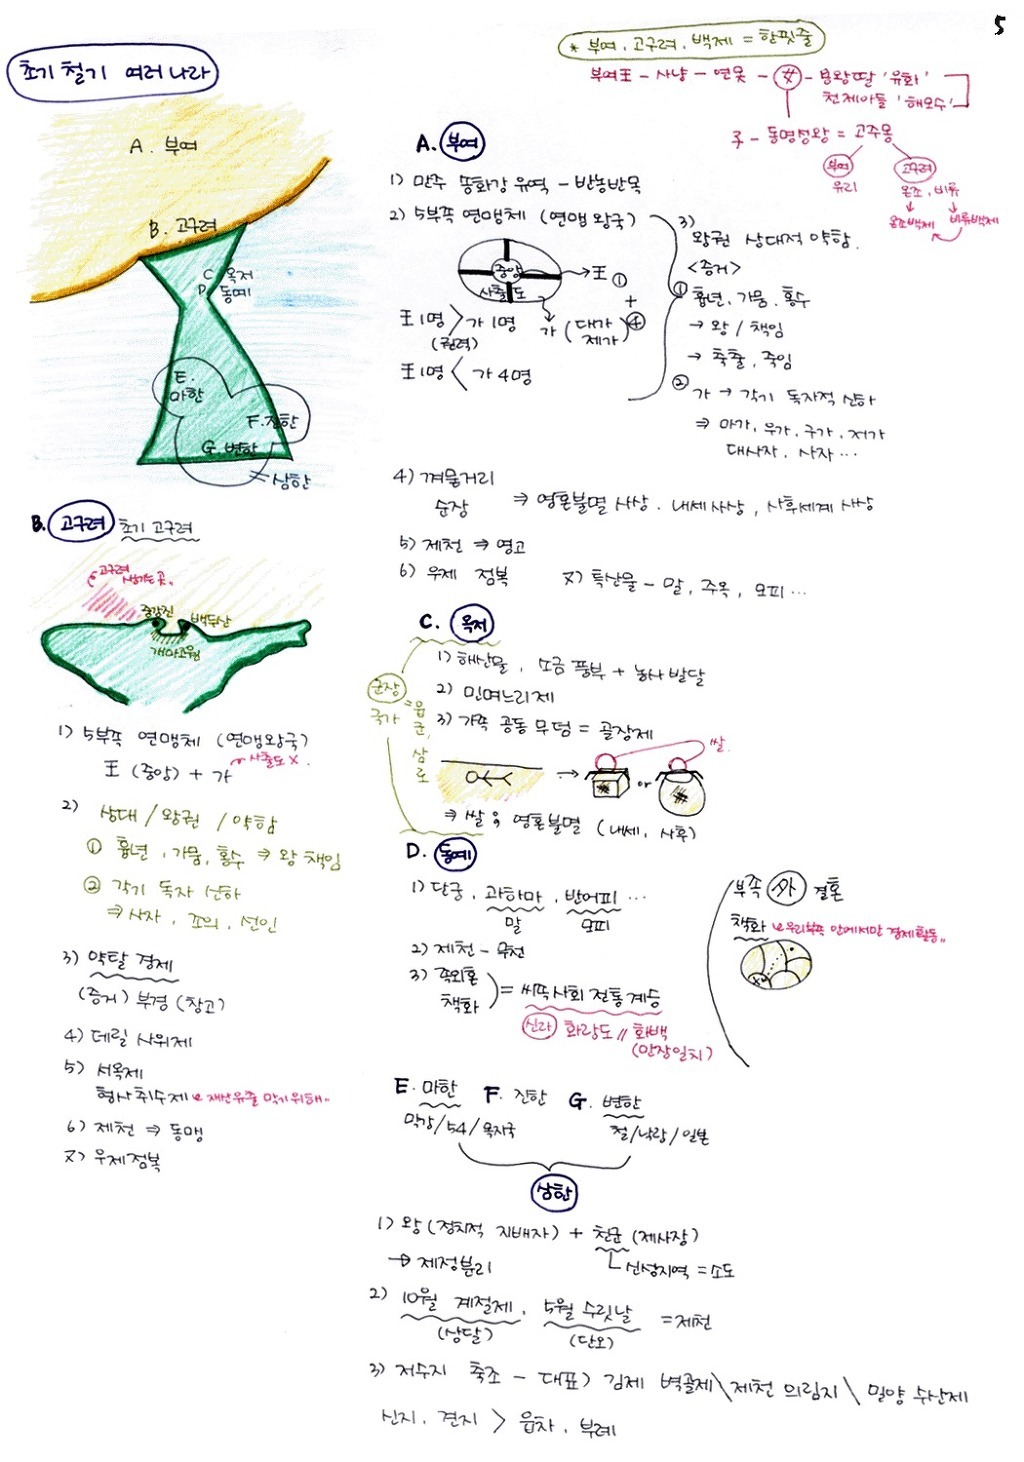 5
초기 철기 여러 나라
* 부여, 고구려, 백제 = 한핏줄
부여王 - 사냥 - 연못 - 女 - 용왕딸 '유화'
천제아들 '해모수'
子 - 동명성왕 = 고주몽
부여
유리
고구려
온조, 비류
온조백제
비류백제
A. 부여
B. 고구려
C 옥저
D 동예
E. 마한
F. 진한
G. 변한
= 삼한
A. 부여
1) 만주 쑹화강 유역 - 반농반목
2) 5부족 연맹체 (연맹 왕국)
중앙
사출도
→ 王 ①
+
가 (대가 제가) ④
王1명 > 가 1명
(권력)
王1명 < 가 4명
3) 왕권 상대적 약함.
<증거>
① 흉년, 가뭄, 홍수
→ 왕 / 책임
→ 축출, 죽임
② 가 → 각기 독자적 신하
⇒ 마가, 우가, 구가, 저가
대사자, 사자 ...
4) 껴묻거리
순장
⇒ 영혼불멸 사상. 내세 사상, 사후세계 사상
5) 제천 ⇒ 영고
6) 우제 점복
7) 특산물 - 말, 주옥, 모피 ...
B. 고구려 초기 고구려
고구려 생기는 곳.
중강진
백두산
개마고원
1) 5부족 연맹체 (연맹왕국)
王 (중앙) + 가
사출도 X.
2) 상대 / 왕권 / 약함
① 흉년, 가뭄, 홍수 ⇒ 왕 책임
② 각기 독자 신하
⇒ 사자, 조의, 선인
3) 약탈 경제
(증거) 부경 (창고)
4) 데릴 사위제
5) 서옥제
형사취수제 재산유출 막기 위해..
6) 제천 ⇒ 동맹
7) 우제점복
C. 옥저
1) 해산물, 소금 풍부 + 농사 발달
2) 민며느리제
3) 가족 공동 무덤 = 골장제
쌀.
→ or
⇒ 쌀; 영혼불멸 (내세, 사후)
군장 국가 = 읍군, 삼로
D. 동예
1) 단궁, 과하마, 반어피 ...
말 모피
2) 제천 - 무천
3) 족외혼
책화
= 씨족사회 전통 계승
신라 화랑도 // 화백
(만장일치)
부족 外 결혼
책화 우리부족 안에서만 경제활동..
E. 마한 F. 진한 G. 변한
막강/54/목지국
철/낙랑/일본
삼한
1) 왕 (정치적 지배자) + 천군 (제사장)
→ 제정분리
신성지역 = 소도
2) 10월 계절제, 5월 수릿날 = 제천
(상달) (단오)
3) 저수지 축조 - 대표) 김제 벽골제 \ 제천 의림지 \ 밀양 수산제
신지, 견지 > 읍차, 부례